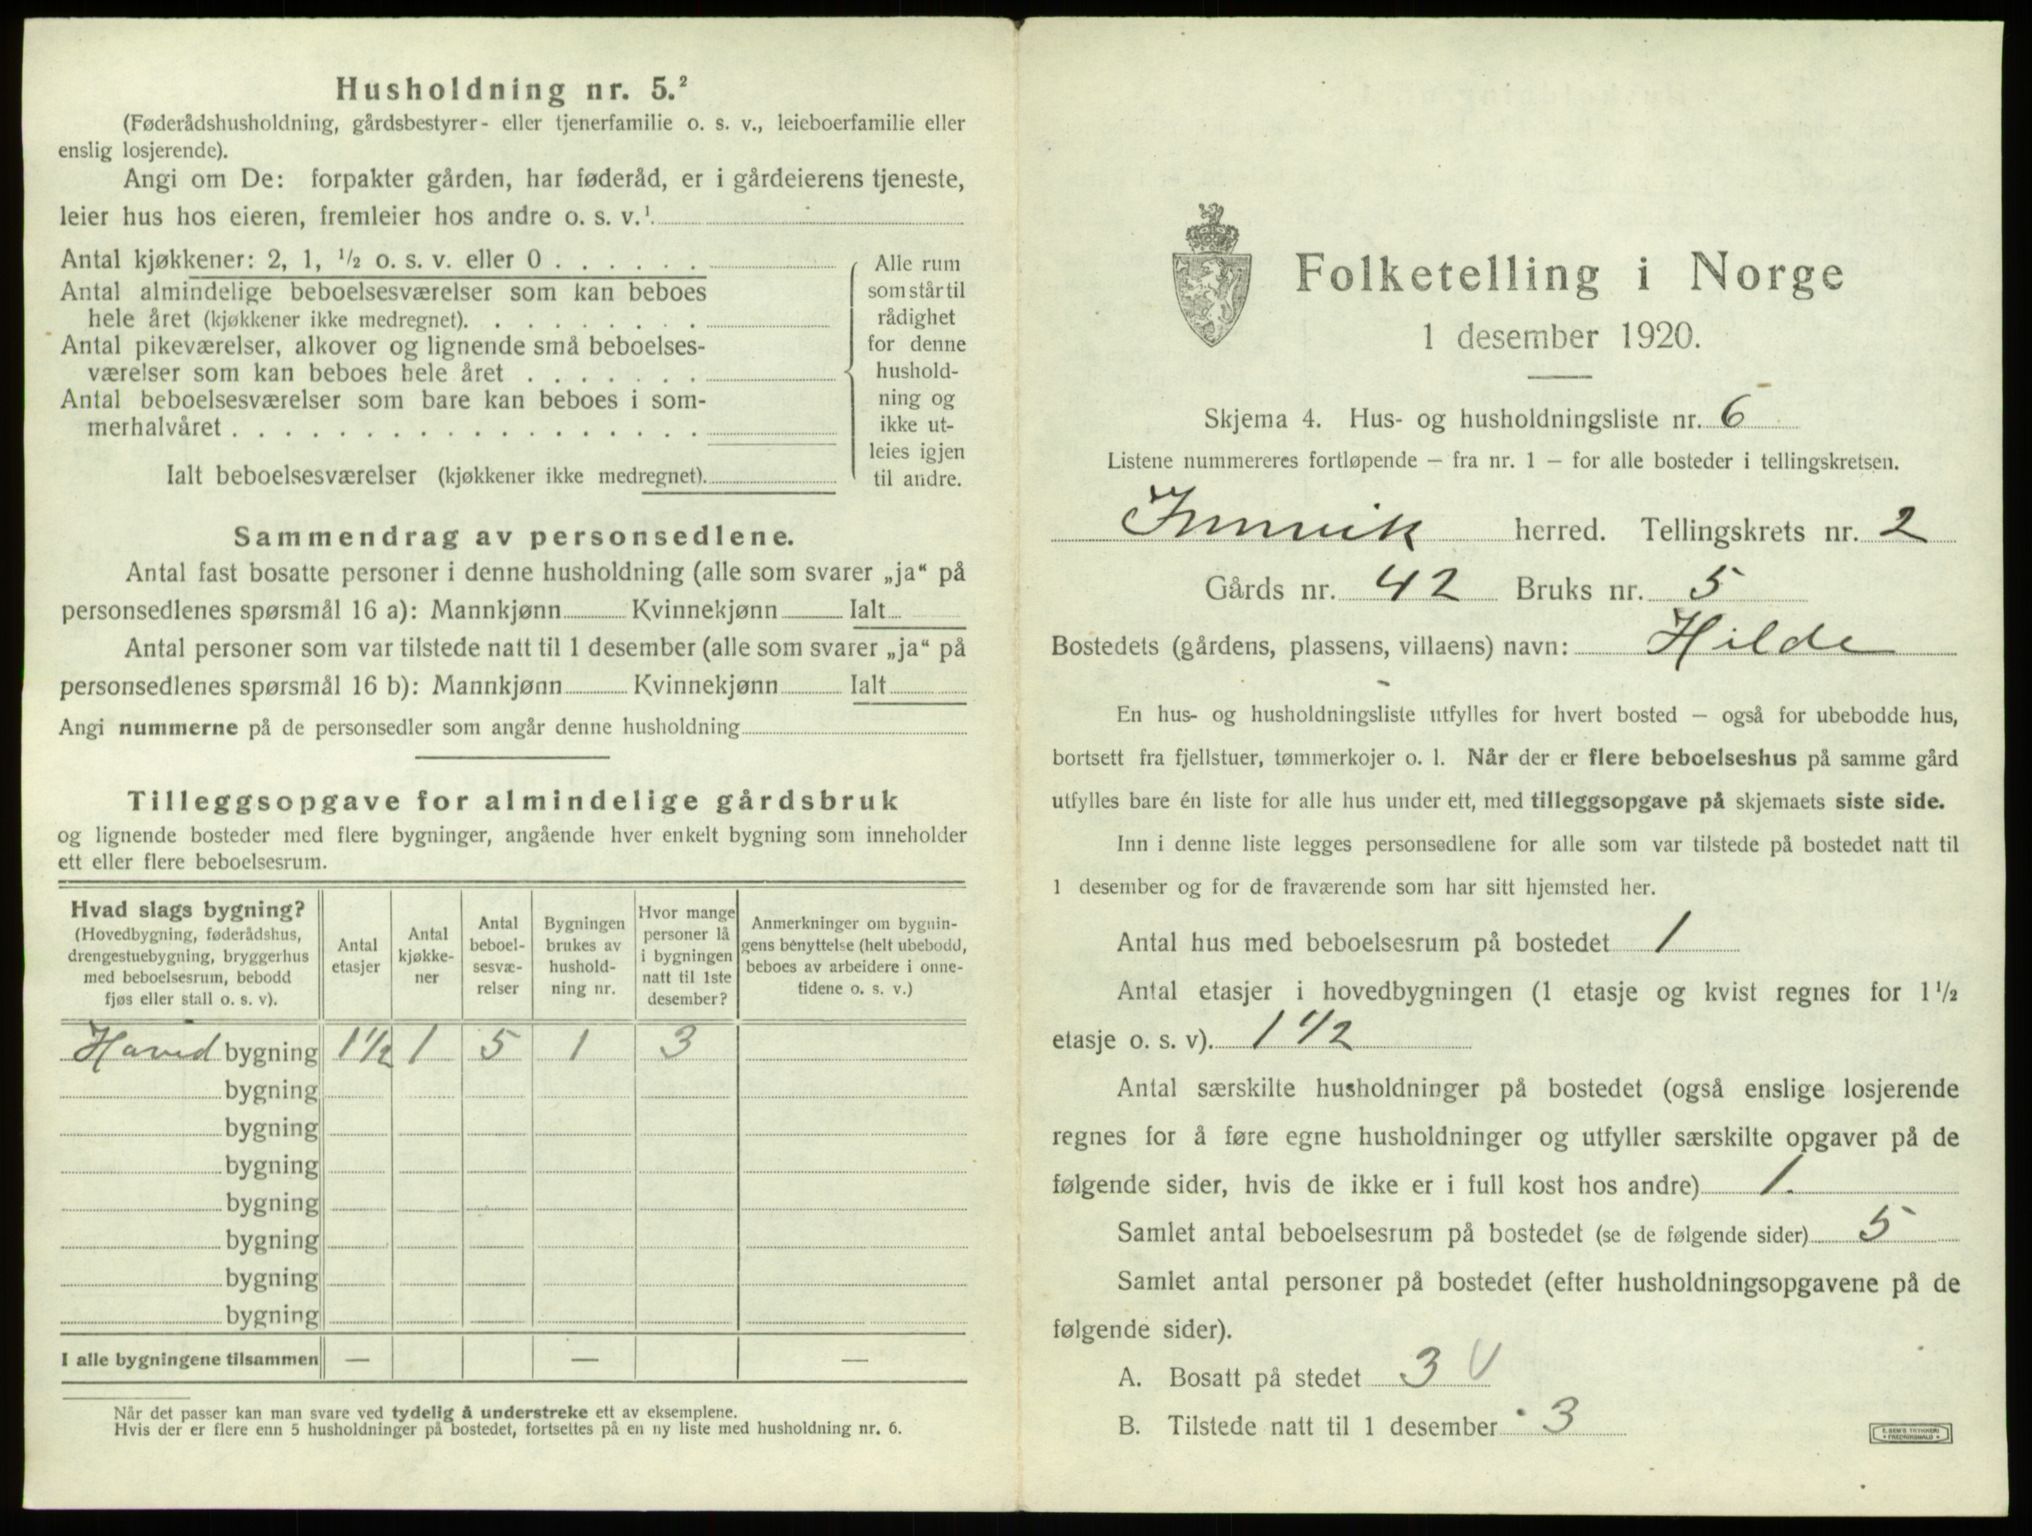 Husholdning nr. 5.²
(Føderådshusholdning, gårdsbestyrer- eller tjenerfamilie o. s. v., leieboerfamilie eller
enslig losjerende).
Angi om De: forpakter gården, har føderåd, er i gårdeierens tjeneste,
leier hus hos eieren, fremleier hos andre o. s. v.¹
Antal kjøkkener: 2, 1, ½ o. s. v. eller 0 . . . . . .
Antal almindelige beboelsesværelser som kan beboes
hele året (kjøkkener ikke medregnet). . . . . . . . .
Antal pikeværelser, alkover og lignende små beboelses-
værelser som kan beboes hele året . . . . . . .
Antal beboelsesværelser som bare kan beboes i som-
merhalvåret . . . . . . . . . . . . . . . . . .
Ialt beboelsesværelser (kjøkkener ikke medregnet).
Alle rum
som står til
rådighet
for denne
hushold-
ning og
ikke ut-
leies igjen
til andre.
Sammendrag av personsedlene.
Antal fast bosatte personer i denne husholdning (alle som svarer „ja“ på
personsedlenes spørsmål 16 a): Mannkjønn Kvinnekjønn Ialt
Antal personer som var tilstede natt til 1 desember (alle som svarer „ja“ på
personsedlenes spørsmål 16 b): Mannkjønn Kvinnekjønn Ialt
Angi nummerne på de personsedler som angår denne husholdning
Tilleggsopgave for almindelige gårdsbruk
og lignende bosteder med flere bygninger, angående hver enkelt bygning som inneholder
ett eller flere beboelsesrum.
Hvad slags bygning?
(Hovedbygning, føderådshus,
drengestuebygning, bryggerhus
med beboelsesrum, bebodd
fjøs eller stall o. s. v).
Antal
etasjer
Antal
kjøkke-
ner
Antal
beboel-
sesvæ-
relser
Bygningen
brukes av
hushold-
ning nr.
Hvor mange
personer lå
i bygningen
natt til 1ste
desember?
Anmerkninger om bygnin-
gens benyttelse (helt ubebodd,
beboes av arbeidere i onne-
tidene o. s. v.)
Hoved bygning 1½ 1 5 1 3
bygning
bygning
bygning
bygning
bygning
bygning
bygning
I alle bygningene tilsammen — — —
Når det passer kan man svare ved tydelig å understreke ett av eksemplene.
Hvis der er flere enn 5 husholdninger på bostedet, fortsettes på en ny liste med husholdning nr. 6.
Folketelling i Norge
1 desember 1920.
Skjema 4. Hus- og husholdningsliste nr. 6
Listene nummereres fortløpende – fra nr. 1 – for alle bosteder i tellingskretsen.
Innvik herred. Tellingskrets nr. 2
Gårds nr. 42 Bruks nr. 5
Bostedets (gårdens, plassens, villaens) navn: Hilde
En hus- og husholdningsliste utfylles for hvert bosted – også for ubebodde hus,
bortsett fra fjellstuer, tømmerkojer o. l. Når der er flere beboelseshus på samme gård
utfylles bare én liste for alle hus under ett, med tilleggsopgave på skjemaets siste side.
Inn i denne liste legges personsedlene for alle som var tilstede på bostedet natt til
1 desember og for de fraværende som har sitt hjemsted her.
Antal hus med beboelsesrum på bostedet 1
Antal etasjer i hovedbygningen (1 etasje og kvist regnes for 1½
etasje o. s. v). 1½
Antal særskilte husholdninger på bostedet (også enslige losjerende
regnes for å føre egne husholdninger og utfyller særskilte opgaver på de
følgende sider, hvis de ikke er i full kost hos andre) 1.
Samlet antal beboelsesrum på bostedet (se de følgende sider) 5
Samlet antal personer på bostedet (efter husholdningsopgavene på de
følgende sider).
A. Bosatt på stedet 3 V
B. Tilstede natt til 1 desember 3